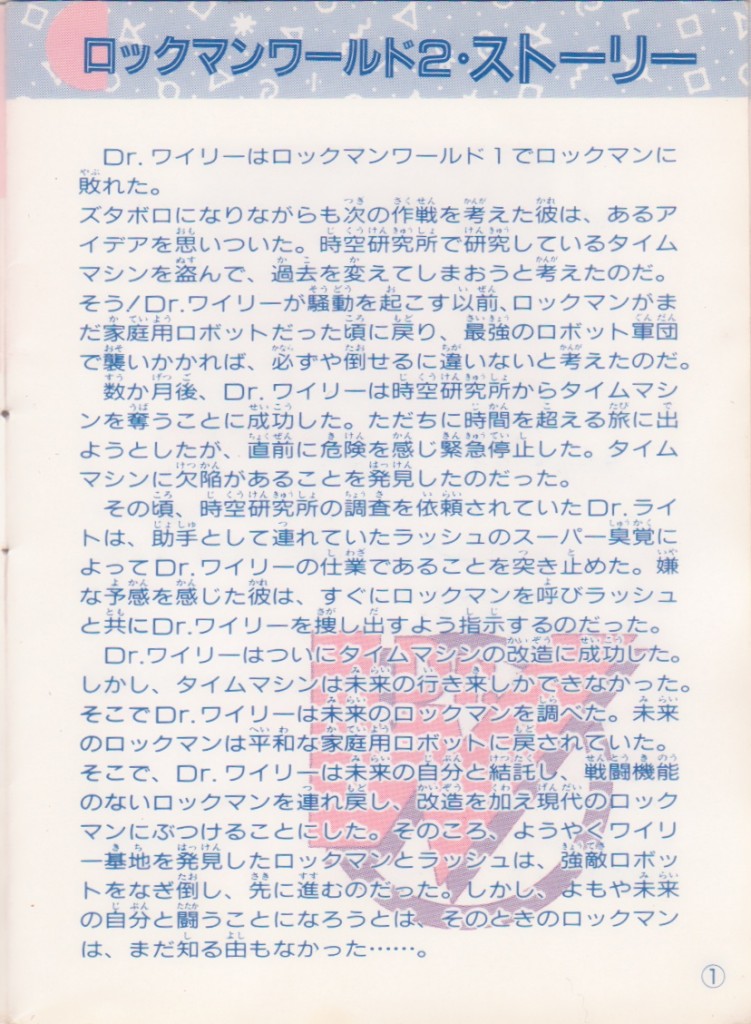 ロックマンワールド2・ストーリー
Dr.ワイリーはロックマンワールド1でロックマンに
敗れた。
ズタボロになりながらも次の作戦を考えた彼は、あるア
イデアを思いついた。時空研究所で研究しているタイム
マシンを盗んで、過去を変えてしまおうと考えたのだ。
そう!Dr.ワイリーが騒動を起こす以前、ロックマンがま
だ家庭用ロボットだった頃に戻り、最強のロボット軍団
で襲いかかれば、必ずや倒せるに違いないと考えたのだ。
数か月後、Dr.ワイリーは時空研究所からタイムマシ
ンを奪うことに成功した。ただちに時間を超える旅に出
ようとしたが、直前に危険を感じ緊急停止した。タイム
マシンに欠陥があることを発見したのだった。
その頃、時空研究所の調査を依頼されていたDr.ライ
トは、助手として連れていたラッシュのスーパー臭覚に
よってDr.ワイリーの仕業であることを突き止めた。嫌
な予感を感じた彼は、すぐにロックマンを呼びラッシュ
と共にDr.ワイリーを捜し出すよう指示するのだった。
Dr.ワイリーはついにタイムマシンの改造に成功した。
しかし、タイムマシンは未来の行き来しかできなかった。
そこでDr.ワイリーは未来のロックマンを調べた。未来
のロックマンは平和な家庭用ロボットに戻されていた。
そこで、Dr.ワイリーは未来の自分と結託し、戦闘機能
のないロックマンを連れ戻し、改造を加え現代のロック
マンにぶつけることにした。そのころ、ようやくワイリ
ー基地を発見したロックマンとラッシュは、強敵ロボッ
トをなぎ倒し、先に進むのだった。しかし、よもや未来
の自分と闘うことになろうとは、そのときのロックマン
は、まだ知る由もなかった……。
①